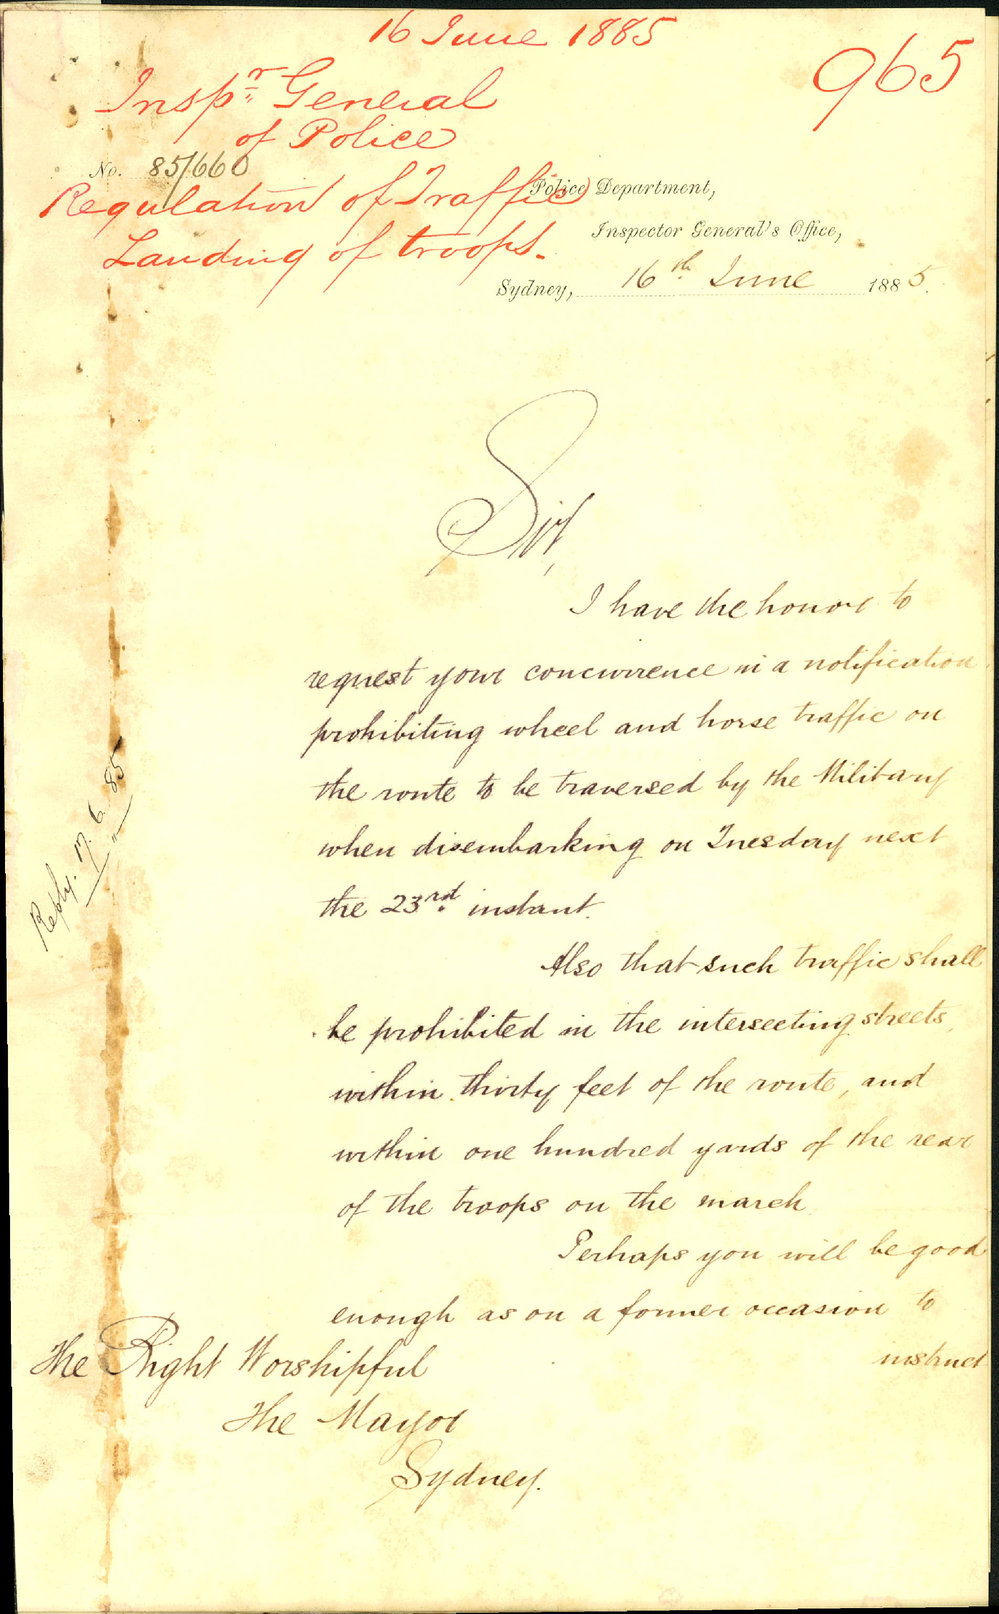 16 June 1885
965
Inspr. General
of Police
No. 85/660
Regulation of Traffic
Landing of troops.
Police Department,
Inspector General's Office,
Sydney, 16th June 1885.
Sir,
I have the honor to
request your concurrence in a notification
prohibiting wheel and horse traffic on
the route to be traversed by the Military
when disembarking on Tuesday next
the 23rd instant.
Also that such traffic shall
be prohibited in the intersecting streets,
within thirty feet of the route, and
within one hundred yards of the rear
of the troops on the march
Perhaps you will be good
enough as on a former occasion to
instruct
The Right Worshipful
The Mayor
Sydney.
Reply. 17.6.85